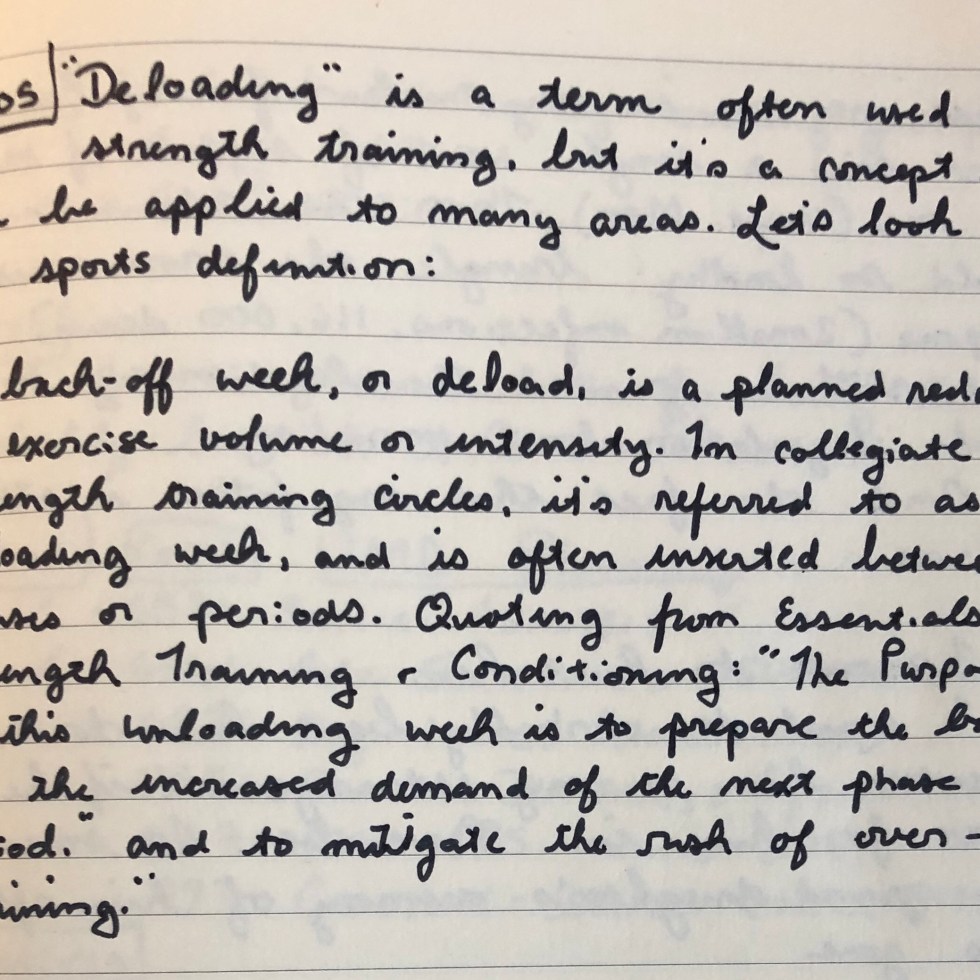 os "Deloading" is a term often used
strength training, but it's a concept
be applied to many areas. Let's look
sports definition:
back-off week, or deload, is a planned redu
exercise volume or intensity. In collegiate
ength training circles, it's referred to as
oading week, and is often inserted betwee
ses or periods. Quoting from Essentials
ength Training & Conditioning: "The Purpo
this unloading week is to prepare the bo
the increased demand of the next phase
iod." and to mitigate the risk of over-
ining."